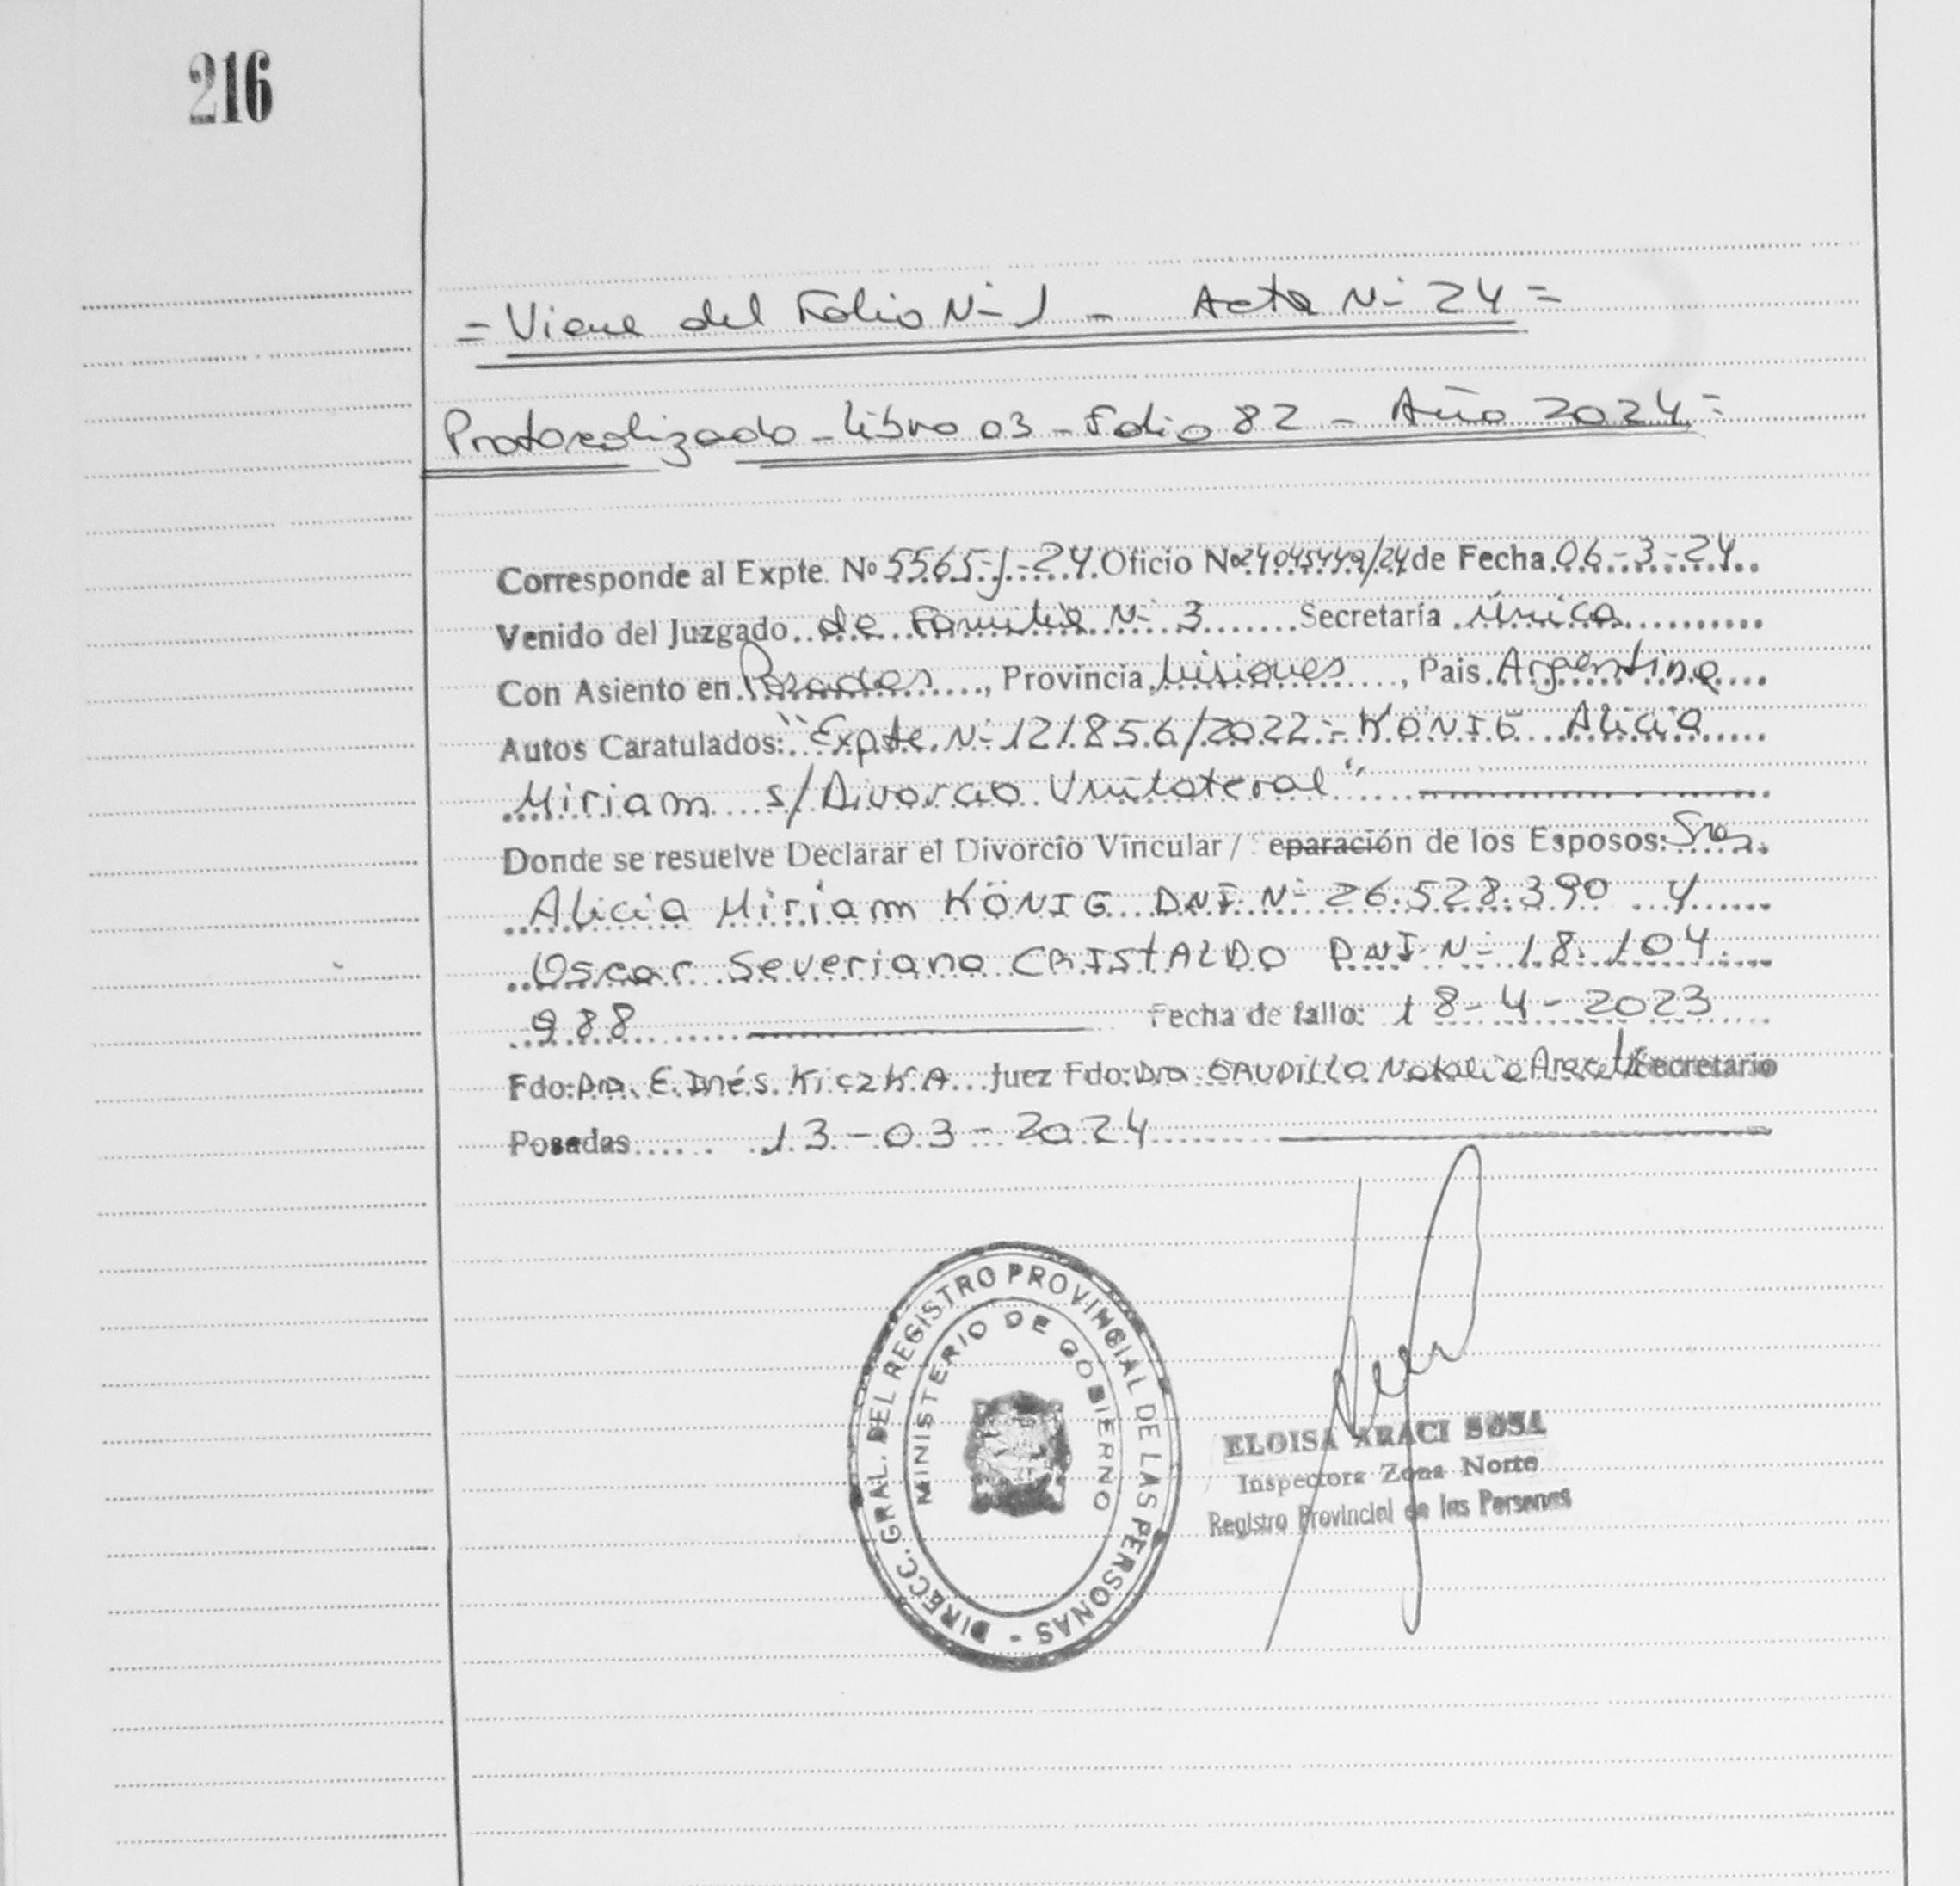 216
= Viene del Folio N- 1 - Acta N- 24 =
Protocolizado - libro 03 - Folio 82 - Año 2024 =
Corresponde al Expte. Nº 5565-J-24 Oficio Nº 24045449/24 de Fecha 06-3-24
Venido del Juzgado de Familia N- 3 Secretaría Única
Con Asiento en Posadas, Provincia Misiones, Pais Argentina
Autos Caratulados: "Expte. N- 121856/2022 - KÖNIG Alicia
Miriam s/ Divorcio Unilateral"
Donde se resuelve Declarar el Divorcio Vincular / eparación de los Esposos: Sres.
Alicia Miriam KÖNIG DNI N- 26.528.390 y
Oscar Severiano CRISTALDO DNI N- 18.104.
988 Fecha de fallo: 18-4-2023
Fdo: Dra. E. Inés KiczKA Juez Fdo: Dra GAUDILLO Natalia Araceli Secretario
Posadas 13-03-2024
DIRECC. GRAL. DEL REGISTRO PROVINCIAL DE LAS PERSONAS -
MINISTERIO DE GOBIERNO
ELOISA ARACI SOSA
Inspectora Zona Norte
Registro Provincial de las Personas